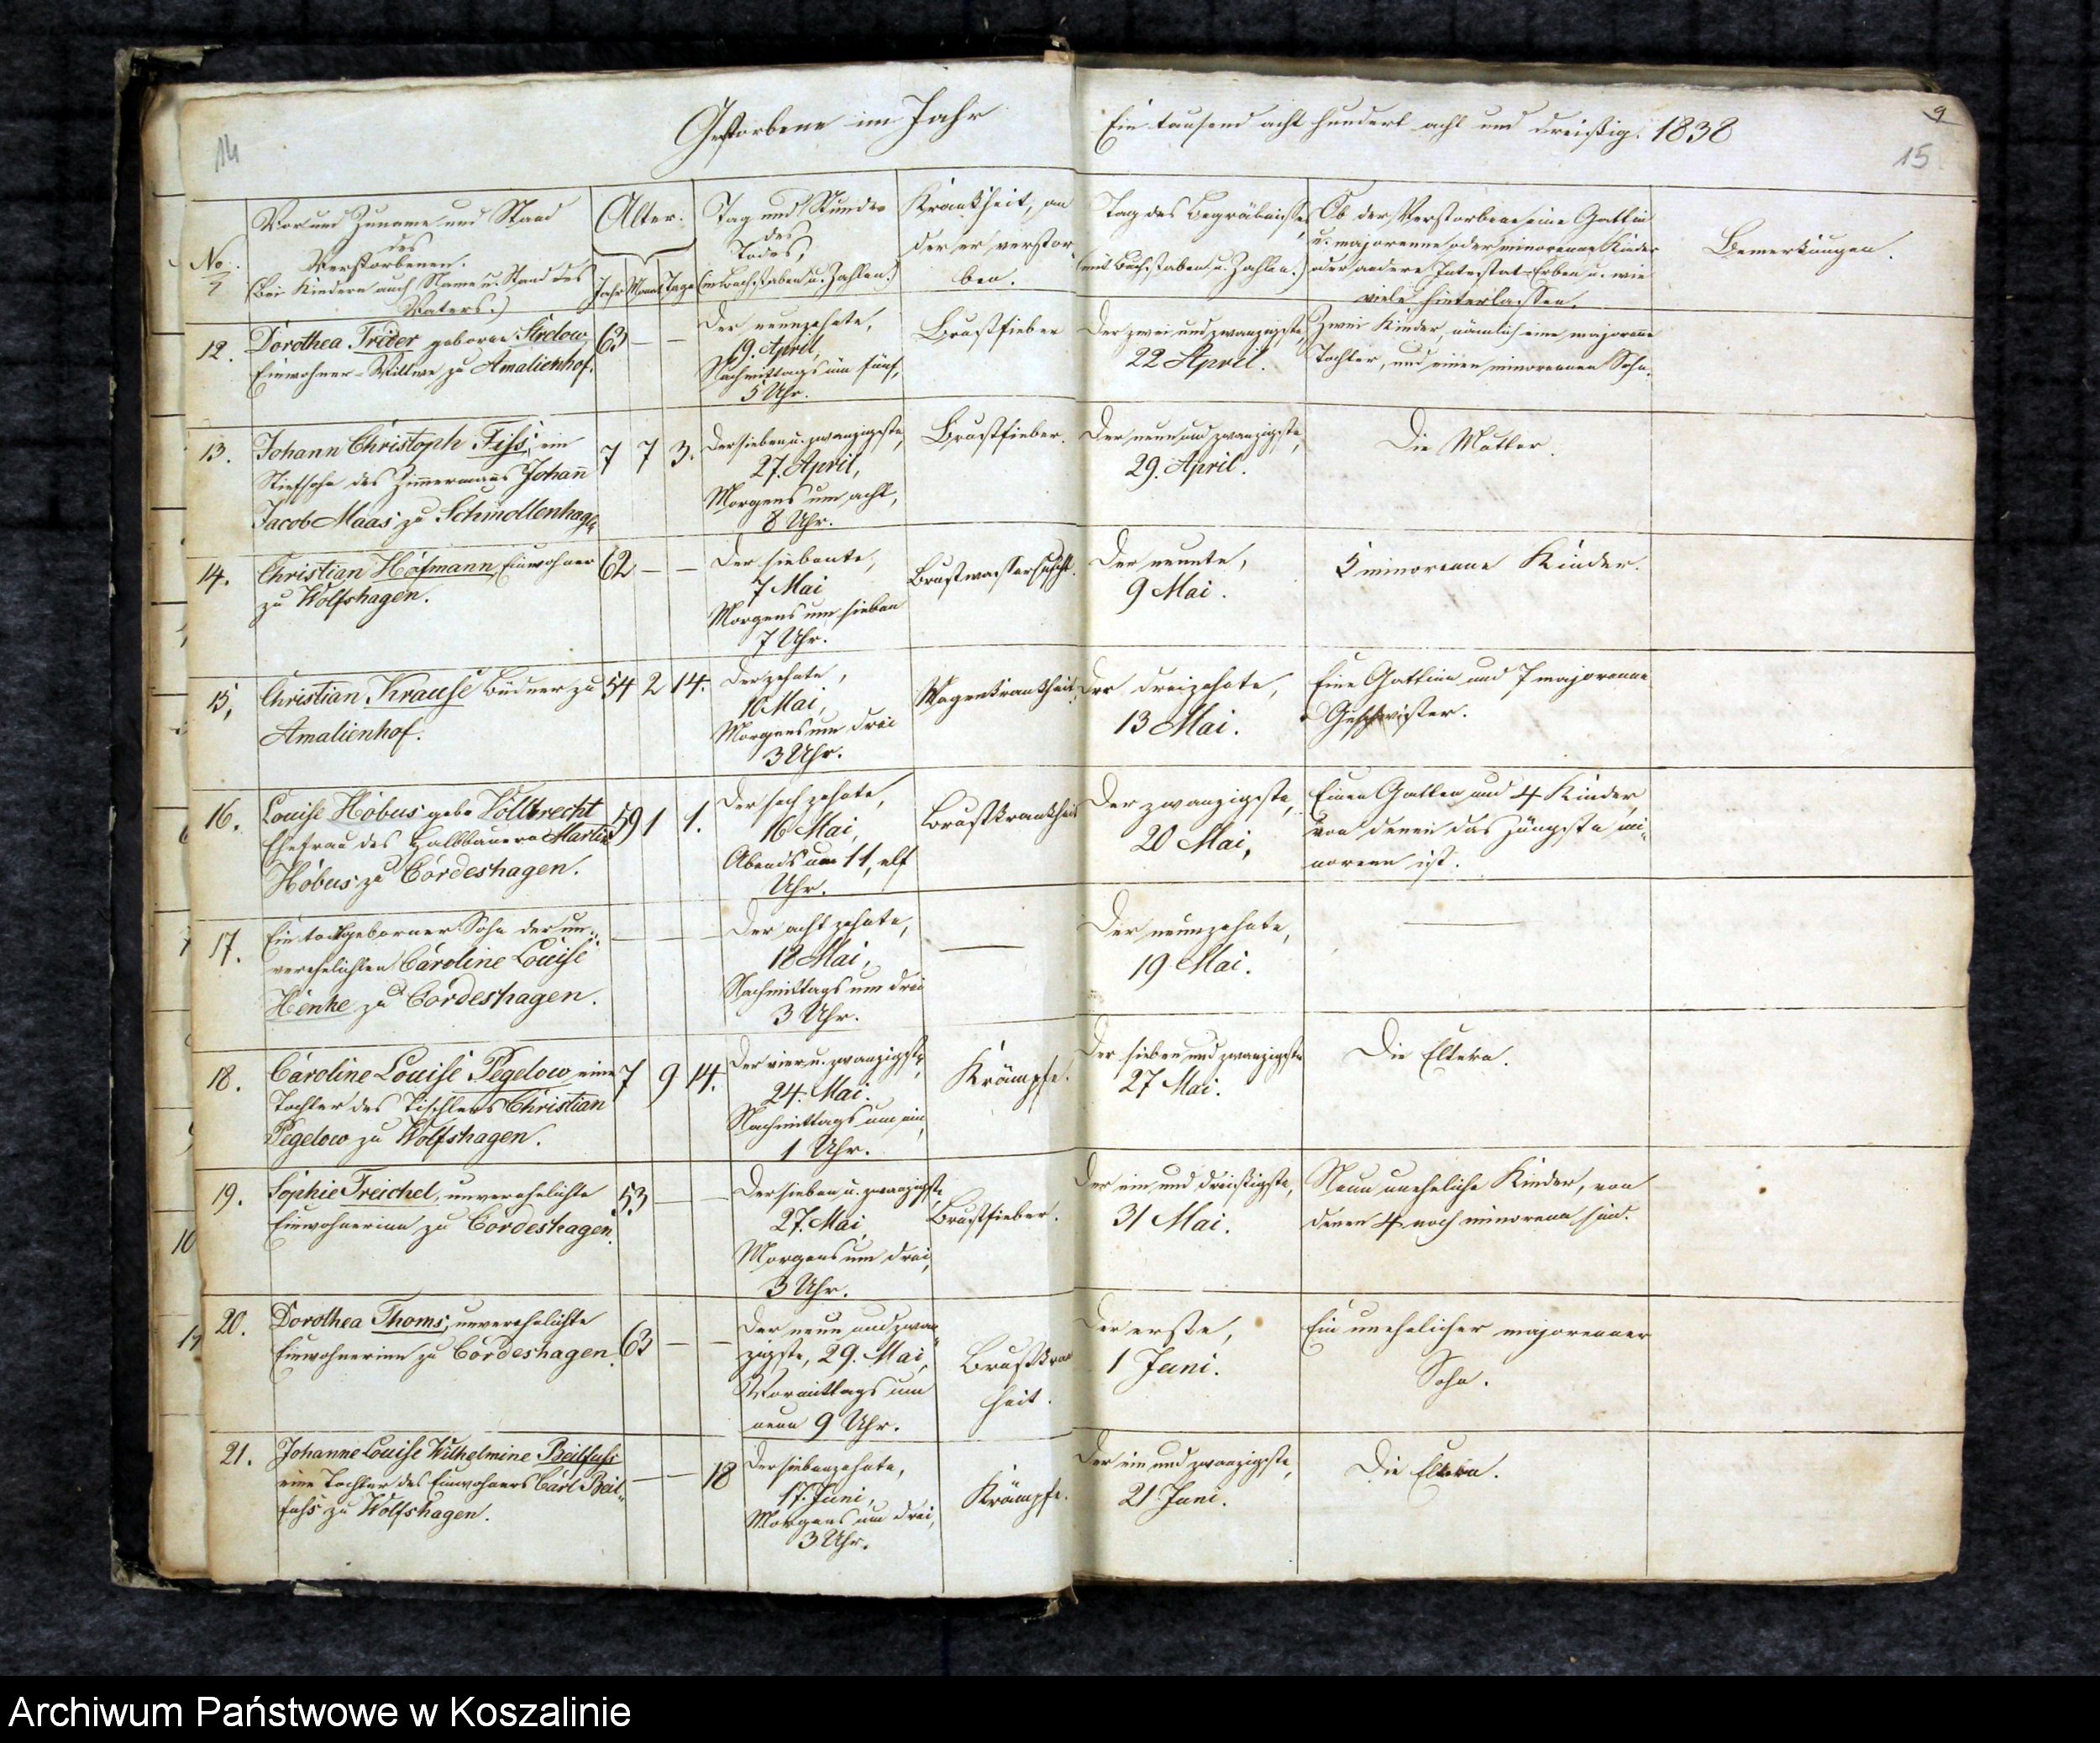 14
Gestorbene im Jahr
Ein tausend acht hundert acht und dreißig. 1838
9
15
No.
Vor und Zuname und Stand
des
Verstorbenen.
(Bei Kindern auch Name u. Stand des
Vaters.)
Alter.
Jahr Monat Tage
Tag und Stunde
des
Todes,
(in Buchstaben u. Zahlen.)
Krankheit, an
der er verstor-
ben.
Tag des Begräbnisses
(mit Buchstaben u. Zahlen.)
Ob der Verstorbene eine Gattin
u. majorenne oder minorenne Kinder
oder andere Intestat-Erben u. wie
viele hinterlassen.
Bemerkungen.
12.
Dorothea Trider geborne Strelow
Einwohner-Wittwe zu Amalienhof.
63 — —
Der neunzehnte,
19. April,
Nachmittags um fünf,
5 Uhr.
Brustfieber
Der zwei und zwanzigste,
22 April.
Zwei Kinder, nämlich eine majorenne
Tochter, und einen minorennen Sohn.
13.
Johann Christoph Fiss, ein
Stiefsohn des Zimmermanns Johann
Jacob Maas zu Schmollenhagen
7 7 3.
Der sieben u. zwanzigste,
27. April,
Morgens um acht,
8 Uhr.
Brustfieber.
Der neun und zwanzigste,
29. April.
Die Mutter.
14.
Christian Hofmann Einwohner
zu Wolfshagen.
62 — —
Der siebente,
7 Mai
Morgens um sieben
7 Uhr.
Brustwassersucht.
Der neunte,
9 Mai.
5 minorenne Kinder.
15,
Christian Krause Büdner zu
Amalienhof.
54 2 14.
Der zehnte,
10 Mai,
Morgens um drei
3 Uhr.
Magenkrankheit.
Der dreizehnte,
13 Mai.
Eine Gattinn und 7 majorenne
Geschwister.
16.
Louise Höbus geb. Vollbrecht
Ehefrau des Halbbauern Martin
Höbus zu Cordeshagen.
59 1 1.
Der sechzehnte,
16 Mai,
Abends um 11, elf
Uhr.
Brustkrankheit
Der zwanzigste,
20 Mai,
Einen Gatten und 4 Kinder,
von denen das Jüngste mi-
norenn ist.
17.
Ein todtgeborner Sohn der un-
verehelichten Caroline Louise
Henke zu Cordeshagen.
— — —
Der achtzehnte,
18 Mai,
Nachmittags um drei
3 Uhr.
—
Der neunzehnte,
19 Mai.
—
18.
Caroline Louise Pegelow eine
Tochter des Tischlers Christian
Pegelow zu Wolfshagen.
7 9 14.
Der vier u. zwanzigste,
24. Mai.
Nachmittags um ein,
1 Uhr.
Krämpfe.
Der sieben und zwanzigste
27 Mai.
Die Eltern.
19.
Sophie Treichel, unverehelichte
Einwohnerinn zu Cordeshagen.
53 — —
Der sieben u. zwanzigste
27. Mai
Morgens um drei,
3 Uhr.
Brustfieber.
Der ein und dreißigste,
31 Mai.
Neun uneheliche Kinder, von
denen 4 noch minorenn sind.
20.
Dorothea Thoms, unverehelichte
Einwohnerinn zu Cordeshagen.
63 — —
Der neun und zwan-
zigste, 29. Mai,
Vormittags um
neun 9 Uhr.
Brustkran
heit.
Der erste,
1 Juni.
Ein unehelicher majorenner
Sohn.
21.
Johanne Louise Wilhelmine Beilfuss
eine Tochter des Einwohners Carl Beil-
fuhs zu Wolfshagen.
— — 18
Der siebenzehnte,
17. Juni,
Morgens um drei,
3 Uhr.
Krämpfe.
Der ein und zwanzigste,
21 Juni.
Die Eltern.
Archiwum Państwowe w Koszalinie